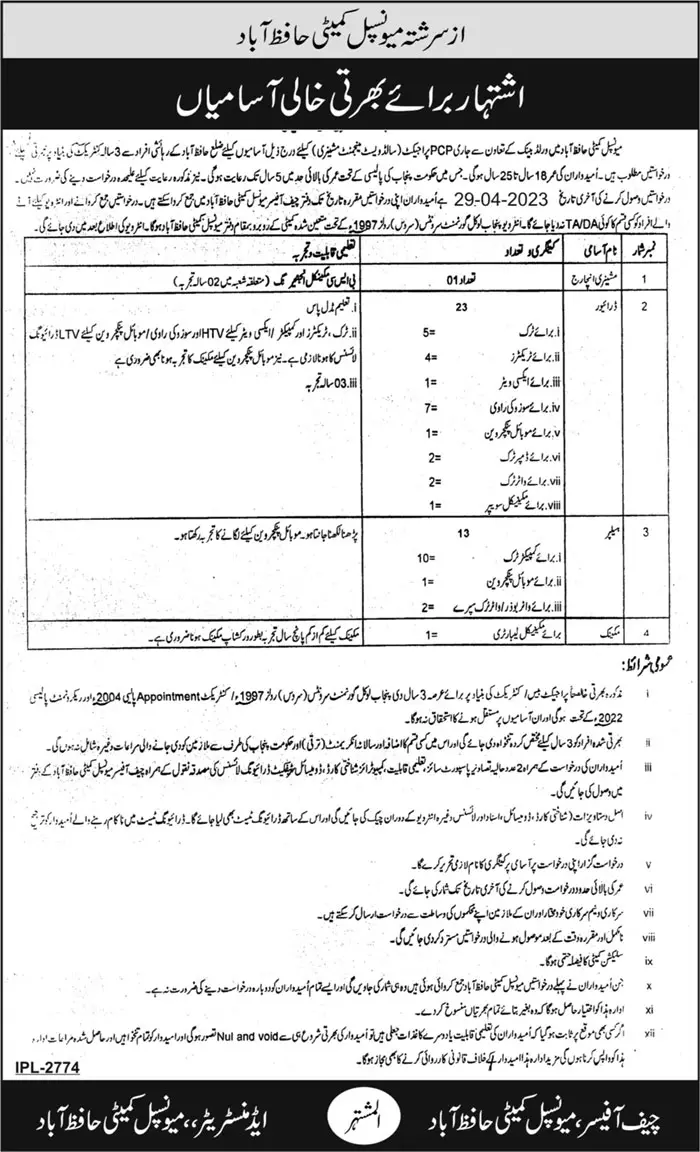 از سر رشتہ میونسپل کمیٹی حافظ آباد
اشتہار برائے بھرتی خالی آسامیاں
میونسپل کمیٹی حافظ آباد میں ورلڈ بینک کے تعاون سے جاری PCP پراجیکٹ (سالڈ ویسٹ مینجمنٹ مشینری) کیلئے درج ذیل آسامیوں کیلئے ضلع حافظ آباد کے رہائشی افراد سے 3 سالہ کنٹریکٹ کی بنیاد پر بھرتی کیلئے
درخواستیں مطلوب ہیں۔ امیدواران کی عمر 18 سال تا 25 سال ہوگی۔ جس میں حکومت پنجاب کی پالیسی کے تحت عمر کی بالائی حد میں 5 سال تک رعایت ہوگی۔ نیز مذکورہ رعایت کیلئے علیحدہ درخواست دینے کی ضرورت نہیں۔
درخواستیں وصول کرنے کی آخری تاریخ 29-04-2023 ہے امیدواران اپنی درخواستیں مقررہ تاریخ تک دفتر چیف آفیسر میونسپل کمیٹی حافظ آباد میں جمع کروا سکتے ہیں۔ درخواستیں جمع کروانے اور انٹرویو کیلئے آنے
والے افراد کو کسی قسم کا کوئی TA/DA نہ دیا جائے گا۔ انٹرویو پنجاب لوکل گورنمنٹ سرونٹس (سروس) رولز 1997ء کے تحت متعین شدہ کمیٹی کے روبرو بمقام دفتر میونسپل کمیٹی حافظ آباد ہوگا۔ انٹرویو کی اطلاع بعد میں دی جائے گی۔
نمبر شمار نام آسامی کیٹگری و تعداد تعلیمی قابلیت و تجربہ
1 مشینری انچارج تعداد 01 بی ایس سی مکینیکل انجینئرنگ (متعلقہ شعبہ میں 02 سالہ تجربہ)
2 ڈرائیور 23 i. تعلیم مڈل پاس
i. برائے ٹرک =5 ii. ٹرک، ٹریکٹرز اور کمپیکٹر / ایکسی ویٹر کیلئے HTV اور سوزوکی راوی / موبائل پنکچر وین کیلئے LTV ڈرائیونگ
ii. برائے ٹریکٹرز =4 لائسنس کا ہونا لازمی ہے۔ نیز موبائل پنکچر وین کیلئے مکینک کا تجربہ ہونا بھی ضروری ہے
iii. برائے ایکسی ویٹر =1 iii. 03 سالہ تجربہ
iv. برائے سوزوکی راوی =7
v. برائے موبائل پنکچر وین =1
vi. برائے ڈمپر ٹرک =2
vii. برائے واٹر ٹرک =2
viii. برائے مکینیکل سویپر =1
3 ہیلپر 13 پڑھنا لکھنا جانتا ہو۔ موبائل پنکچر وین کیلئے پنکچر لگانے کا تجربہ رکھتا ہو۔
i. برائے کمپیکٹر ٹرک =10
ii. برائے موبائل پنکچر وین =1
iii. برائے واٹر بوزر / واٹر ٹرک سپرے =2
4 مکینک برائے مکینیکل لیبارٹری =1 مکینک کیلئے کم از کم پانچ سال تجربہ بطور ورکشاپ مکینک ہونا ضروری ہے۔
عمومی شرائط:
i مذکورہ بھرتی خالصتاً پراجیکٹ بیس / کنٹریکٹ کی بنیاد پر برائے عرصہ 3 سال دی پنجاب لوکل گورنمنٹ سرونٹس (سروس) رولز 1997ء / کنٹریکٹ Appointment پالیسی 2004ء اور ریکروٹمنٹ پالیسی
2022ء کے تحت ہوگی اور ان آسامیوں پر مستقل ہونے کا استحقاق نہ ہوگا۔
ii بھرتی شدہ افراد کو 3 سال کیلئے مختص کردہ تنخواہ دی جائے گی اور اس میں کسی قسم کا اضافہ اور سالانہ انکریمنٹ (ترقی) اور حکومت پنجاب کی طرف سے ملازمین کو دی جانے والی مراعات وغیرہ شامل نہ ہوں گی۔
iii امیدواران کی درخواست کے ہمراہ 2 عدد حالیہ تصاویر پاسپورٹ سائز، تعلیمی قابلیت، کمپیوٹرائز شناختی کارڈ، ڈومیسائل سرٹیفکیٹ ڈرائیونگ لائسنس کی مصدقہ نقول کے ہمراہ چیف آفیسر میونسپل کمیٹی حافظ آباد کے دفتر
میں وصول کی جائیں گی۔
iv اصل دستاویزات (شناختی کارڈ، ڈومیسائل، اسناد اور لائسنس وغیرہ انٹرویو کے دوران چیک کی جائیں گی اور اس کے ساتھ ڈرائیونگ ٹیسٹ بھی لیا جائے گا۔ ڈرائیونگ ٹیسٹ میں ناکام رہنے والے امیدوار کو ترجیح
نہ دی جائے گی۔
v درخواست گزار اپنی درخواست پر آسامی پر کیٹگری کا نام لازمی تحریر کرے گا۔
vi عمر کی بالائی حد درخواست وصول کرنے کی آخری تاریخ تک شمار کی جائے گی۔
vii سرکاری و نیم سرکاری خود مختار اداران کے ملازمین اپنے محکموں کی وساطت سے درخواست ارسال کر سکتے ہیں۔
viii نامکمل اور مقررہ وقت کے بعد موصول ہونے والی درخواستیں مسترد کر دی جائیں گی۔
ix سلیکشن کمیٹی کا فیصلہ حتمی ہوگا۔
x جن امیدواران نے پہلے درخواستیں میونسپل کمیٹی حافظ آباد جمع کروائی ہوئی ہیں وہ ہی شمار کی جاویں گی اور ایسے تمام امیدواران کو دوبارہ درخواست دینے کی ضرورت نہ ہے۔
xi ادارہ ہذا کو اختیار حاصل ہوگا کہ وہ بغیر بتائے تمام بھرتیاں منسوخ کر دے۔
xii اگر کسی بھی موقع پر ثابت ہو گیا کہ امیدواران کی تعلیمی قابلیت یا دوسرے کاغذات جعلی ہیں تو امیدوار کی بھرتی شروع ہی سے Nul and void تصور ہوگی اور امیدوار کو تمام تنخواہیں اور حاصل شدہ مراعات ادارہ
ہذا کو واپس کرنا ہوں گی مزید ادارہ ہذا امیدوار کے خلاف قانونی کارروائی کرنے کا بھی مجاز ہوگا۔
IPL-2774
چیف آفیسر، میونسپل کمیٹی حافظ آباد المشتہر ایڈمنسٹریٹر،، میونسپل کمیٹی حافظ آباد